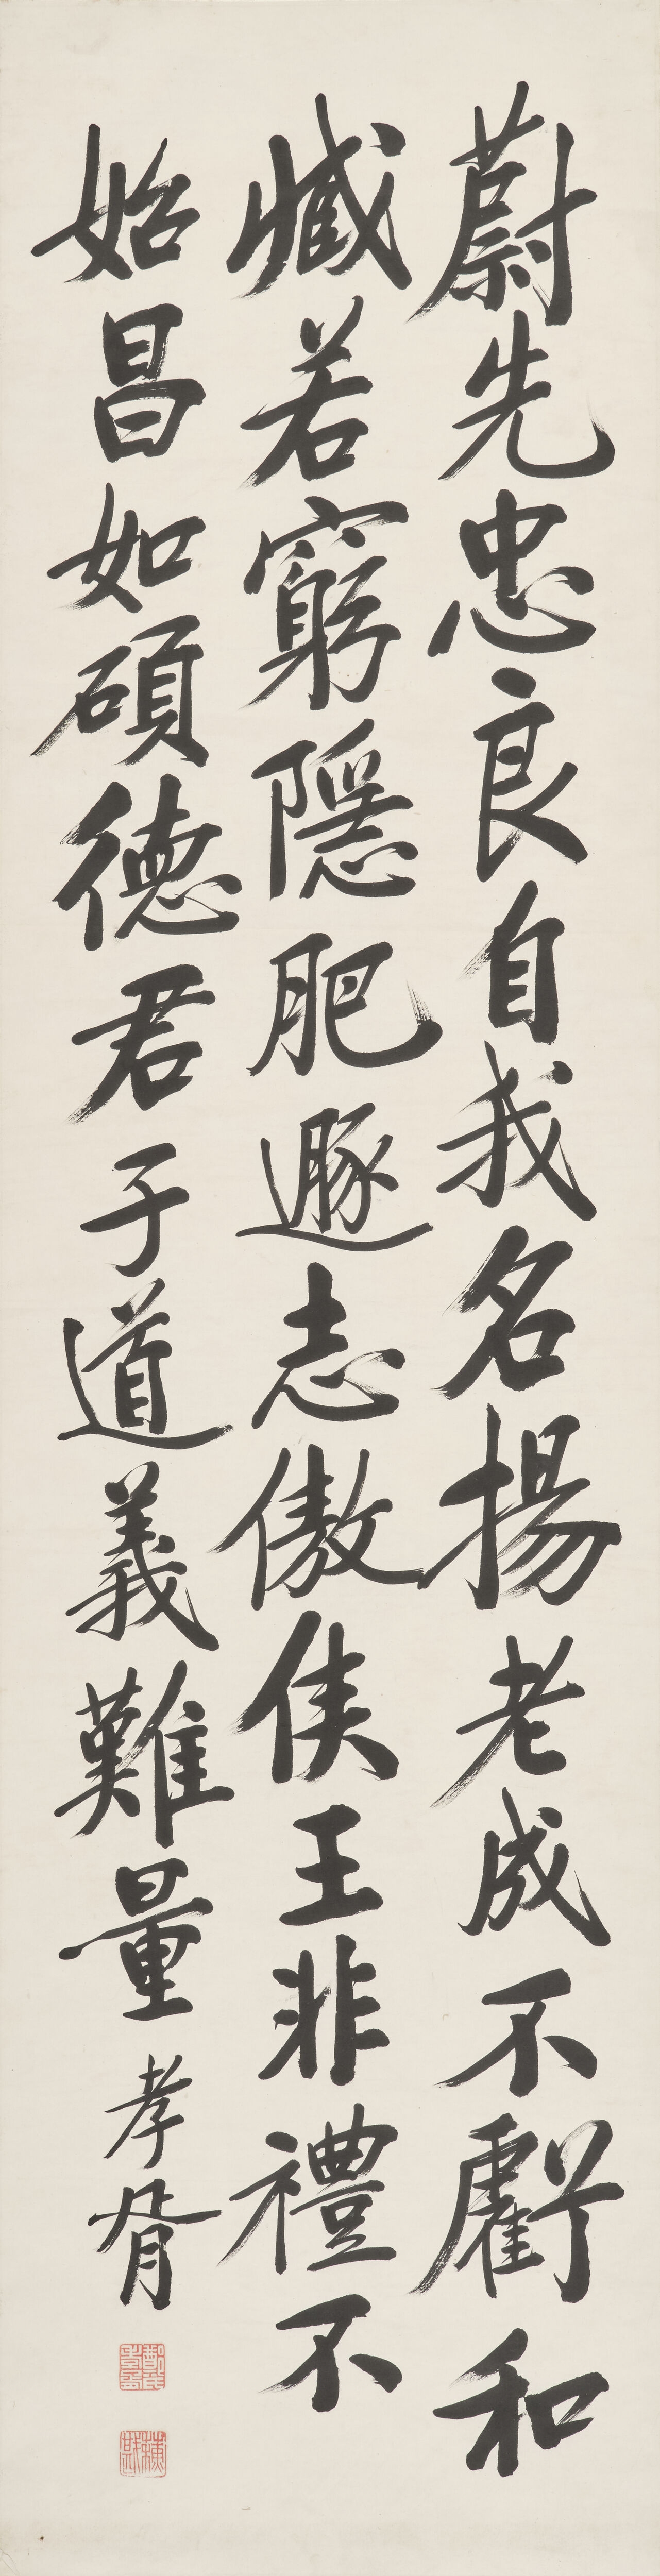 蔚先忠良自我名揚老成不虧和
臧若窮隱肥遯志傲侯王非禮不
始昌如碩德君子道義難量
孝胥